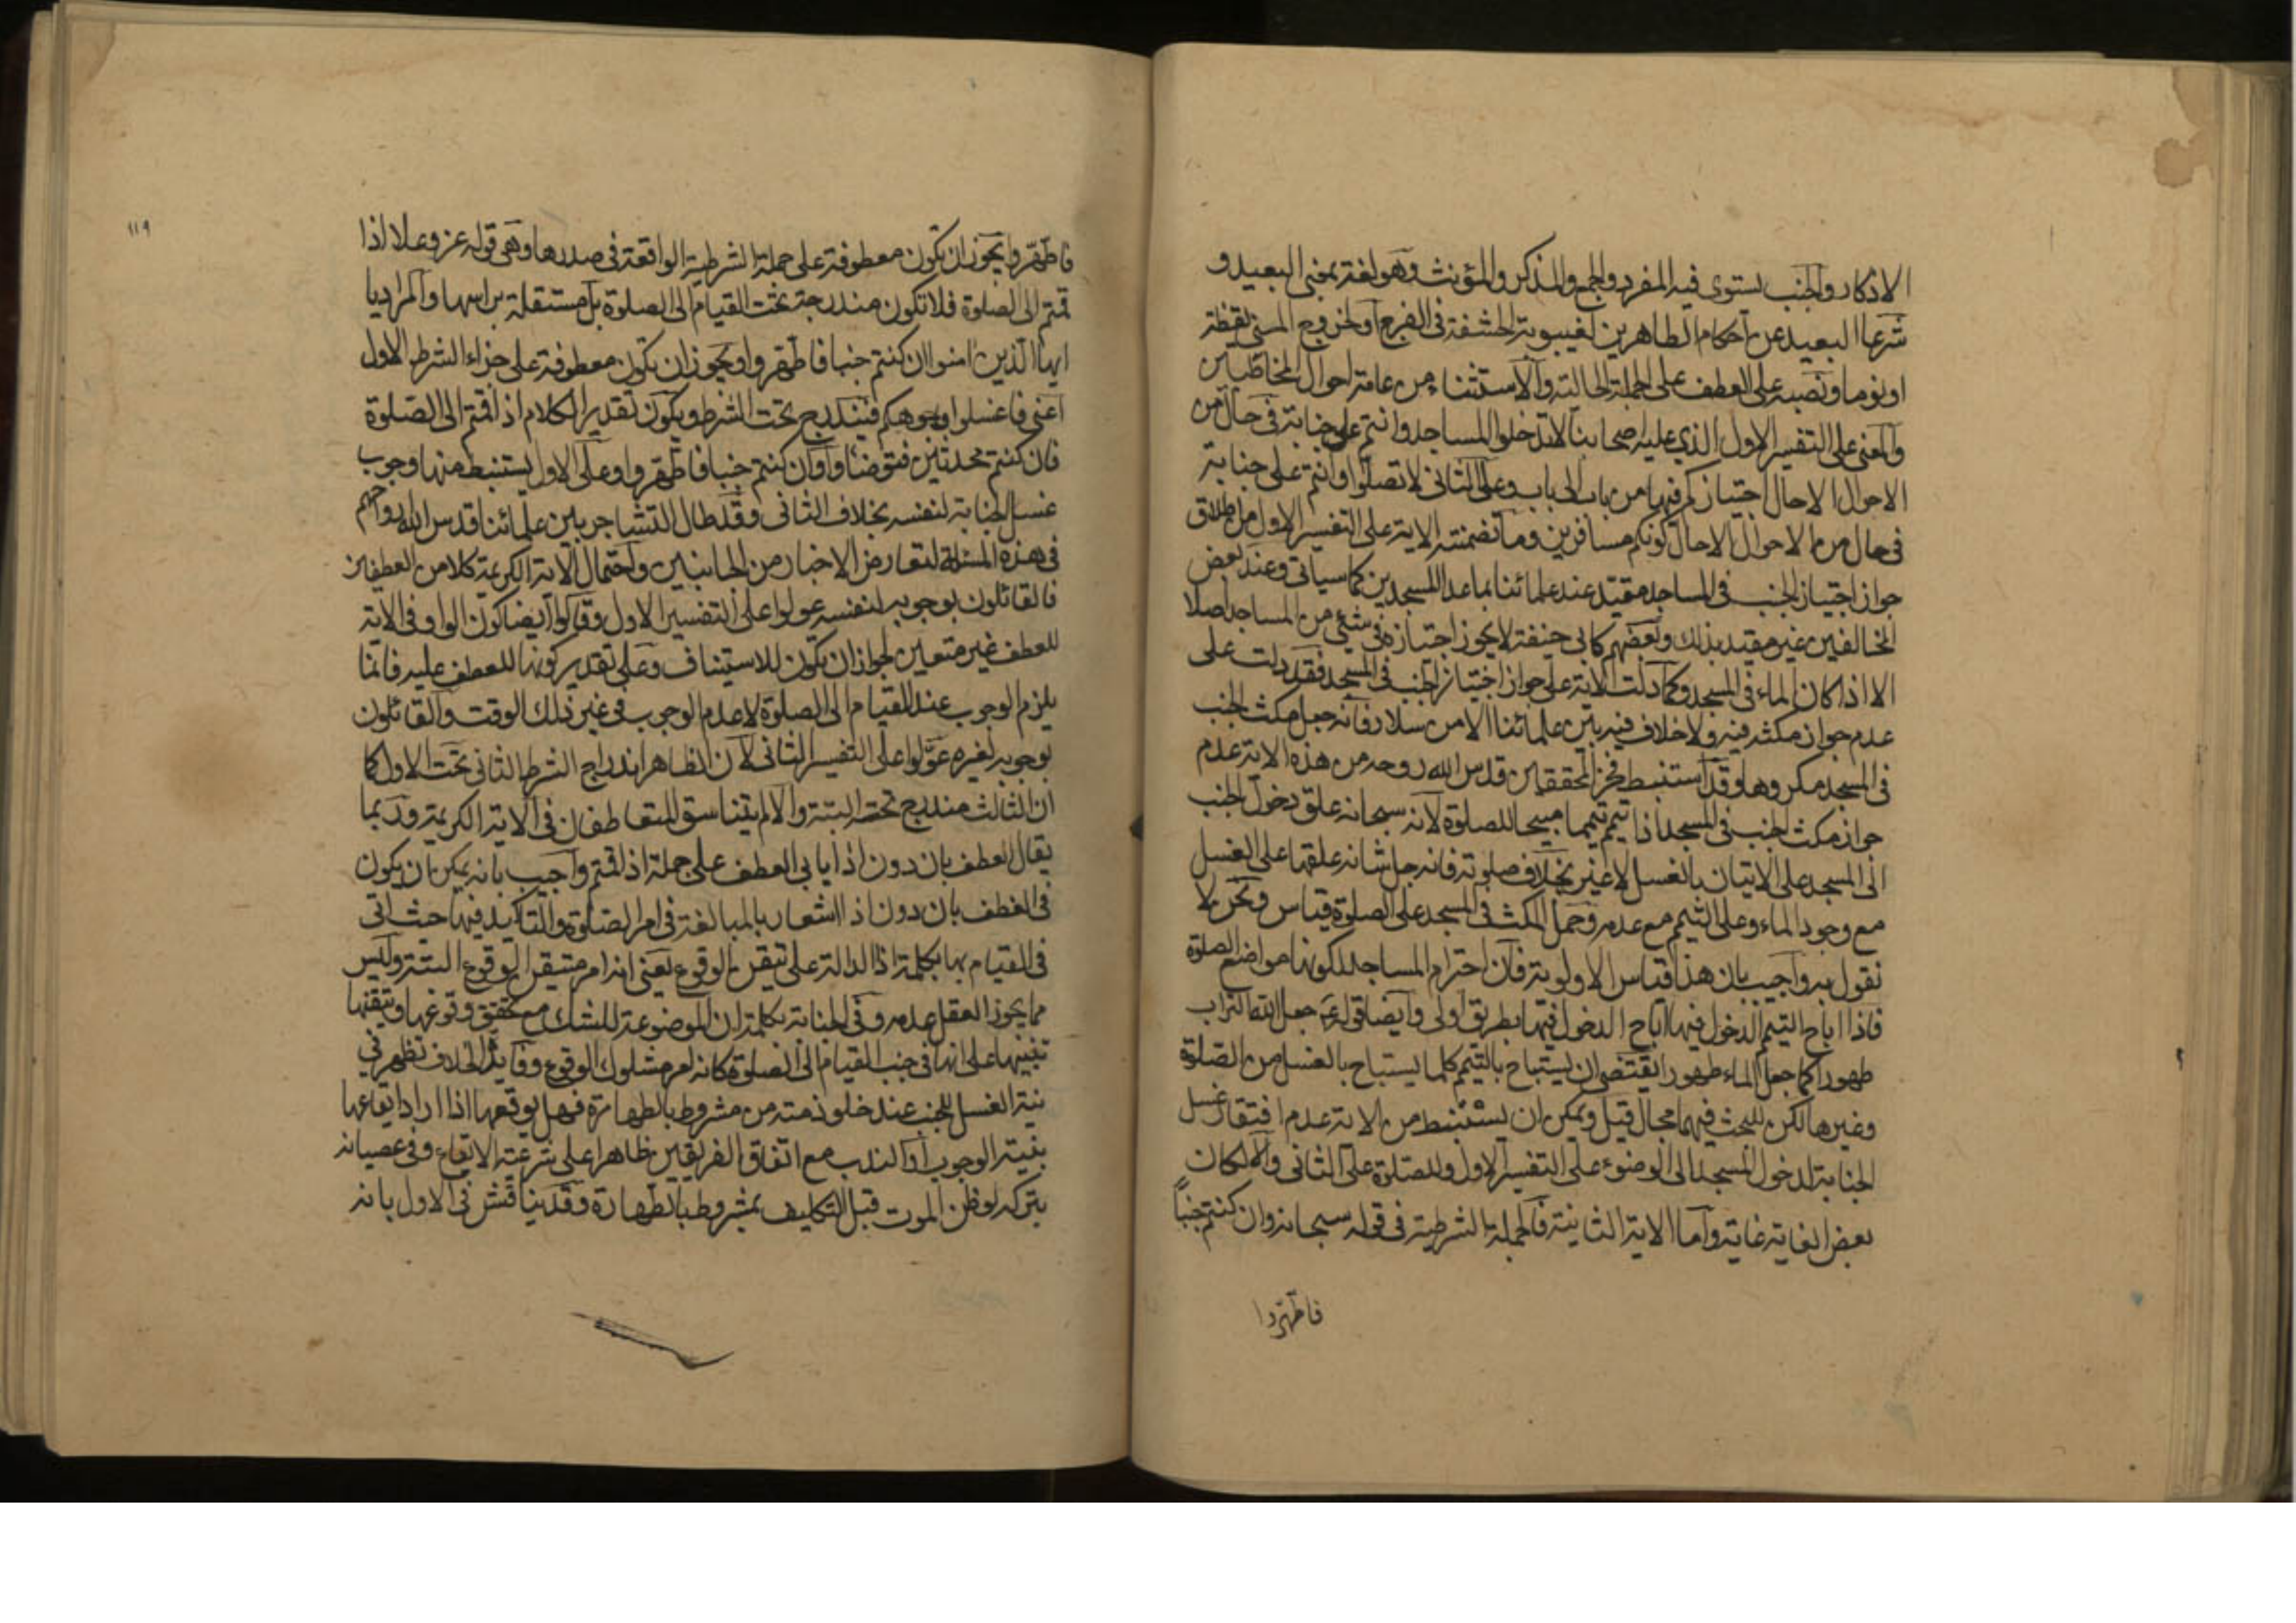 الاذكار والجنب يستوى فيه المفرد والجمع والمذكر والمؤنث وهو لغة بمعنى البعيد و
شرعا البعيد عن احكام الطاهرين لغيبوبة الحشفة فى الفرج او لخروج المنى يقظة
او نوما ونصبه على العطف على الجملة الحالية والاستثناء من عامة احوال المخاطبين
والمعنى على التفسير الاول الذى عليه اصحابنا لا تدخلوا المساجد وانتم على جنابة فى حال من
الاحوال الا حال اجتيازكم فيها من باب الى باب وعلى الثانى لا تصلوا وانتم على جنابة
فى حال من الاحوال الا حال كونكم مسافرين وما تضمنته الاية على التفسير الاول من اطلاق
جواز اجتياز الجنب فى المساجد مقيد عند علمائنا بما عدا المسجدين كما سياتى وعند بعض
المخالفين غير مقيد بذلك وبعضهم كابى حنيفة لا يجوز اجتيازه فى شئ من المساجد اصلا
الا اذا كان الماء فى المسجد وكما دلت الاية على جواز اجتياز الجنب فى المسجد فقد دلت على
عدم جواز مكثه فيه ولا خلاف فيه بين علمائنا الا من سلار فانه جعل مكث الجنب
فى المسجد مكروها وقد استنبط فخر المحققين قدس الله روحه من هذه الاية عدم
جواز مكث الجنب فى المسجد اذا تيمم تيمما مبيحا للصلوة لانه سبحانه علق دخول الجنب
الى المسجد على الاتيان بالغسل لا غير بخلاف صلوته فانه جل شانه علقها على الغسل
مع وجود الماء وعلى التيمم مع عدمه وحمل المكث فى المسجد على الصلوة قياس ونحن لا
نقول به واجيب بان هذا قياس الاولوية فان احترام المساجد لكونها مواضع الصلوة
فاذا اباح التيمم الدخول فيها اباح الدخول فيها بطريق اولى وايضا قوله جعل الله التراب
طهورا كما جعل الماء طهورا يقتضى ان يستباح بالتيمم كلما يستباح بالغسل من الصلوة
وغيرها لكن للبحث فيهما مجال قيل ويمكن ان يستنبط من الاية عدم افتقار غسل
الجنابة لدخول المسجد الى الوضوء على التفسير الاول وللصلوة على الثانى والا لكان
بعض الغاية غاية واما الاية الثانية فالجملة الشرطية فى قوله سبحانه وان كنتم جنباً
فاطهروا
١١٩
فاطهروا يجوز ان تكون معطوفة على جملة الشرطية الواقعة فى صدرها وهى قوله عز وعلا اذا
قمتم الى الصلوة فلا تكون مندرجة تحت القيام الى الصلوة بل مستقلة براسها والمراد يا
ايها الذين امنوا ان كنتم جنبا فاطهروا ويجوز ان تكون معطوفة على جزاء الشرط الاول
اعنى فاغسلوا وجوهكم فيندرج تحت الشرط ويكون تقدير الكلام اذا قمتم الى الصلوة
فان كنتم محدثين فتوضئاوا وان كنتم جنبا فاطهروا وعلى الاول يستنبط منها وجوب
غسل الجنابة لنفسه بخلاف الثانى وقد طال التشاجر بين علمائنا قدس الله ارواحهم
فى هذه المسئلة لتعارض الاخبار من الجانبين واحتمال الاية الكريمة كلا من العطفين
فالقائلون بوجوبه لنفسه عولوا على التفسير الاول وقالوا ايضا كون الواو فى الاية
للعطف غير متعين لجواز ان تكون للاستيناف وعلى تقدير كونها للعطف عليه فانما
يلزم الوجوب عند القيام الى الصلوة لا عدم الوجوب فى غير ذلك الوقت والقائلون
بوجوبه لغيره عولوا على التفسير الثانى لان الظاهر اندراج الشرط الثانى تحت الاول كما
ان الثالث مندرج تحته البتة والا لم يتناسق المتعاطفان فى الاية الكريمة وربما
يقال العطف بان دون اذا يابى العطف على جملة اذا قمتم واجيب بانه يمكن ان يكون
فى العطف بان دون اذا اشعار بالمبالغة فى امر الصلوة والتاكيد فيها حيث اتى
فى القيام بها بكلمة اذا الدالة على تيقن الوقوع يعنى انه امر متيقن الوقوع البتة وليس
مما يجوز العقل عدمه وفى الجنابة بكلمة ان الموضوعة للشك مع تحقق وقوعها وتيقنها
تنبيها على انها فى جنب القيام الى الصلوة كانه امر مشكوك الوقوع وفايدة الخلاف تظهر فى
نية الغسل للجنب عند خلو ذمته من مشروط بالطهارة فهل يوقعها اذا اراد ايقاعها
بنية الوجوب او الندب مع اتفاق الفريقين ظاهرا على شرعية الايقاع وفى عصيانه
بتركه لو ظن الموت قبل التكليف بمشروط بالطهارة وقد يناقش فى الاول بانه